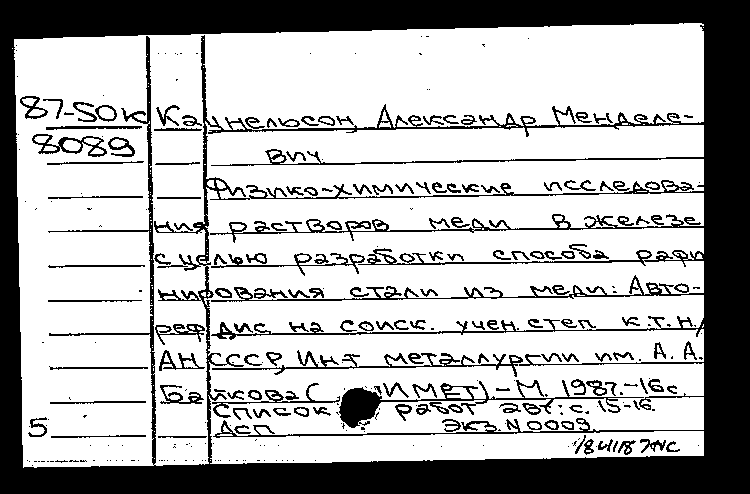 87-50к Кацнельсон, Александр Менделе-
8089 вич
Физико-химические исследова-
ния растворов меди в железе
с целью разработки способа рафи
нирования стали из меди: Авто-
реф. дис. на соиск. учен. степ. к.т.н/
АН СССР, Ин-т металлургии им. А. А.
Байкова (ИМЕТ).-М. 1987.-16с.
Список работ авт: с. 15-16.
5 Дсп Экз. N 0009.